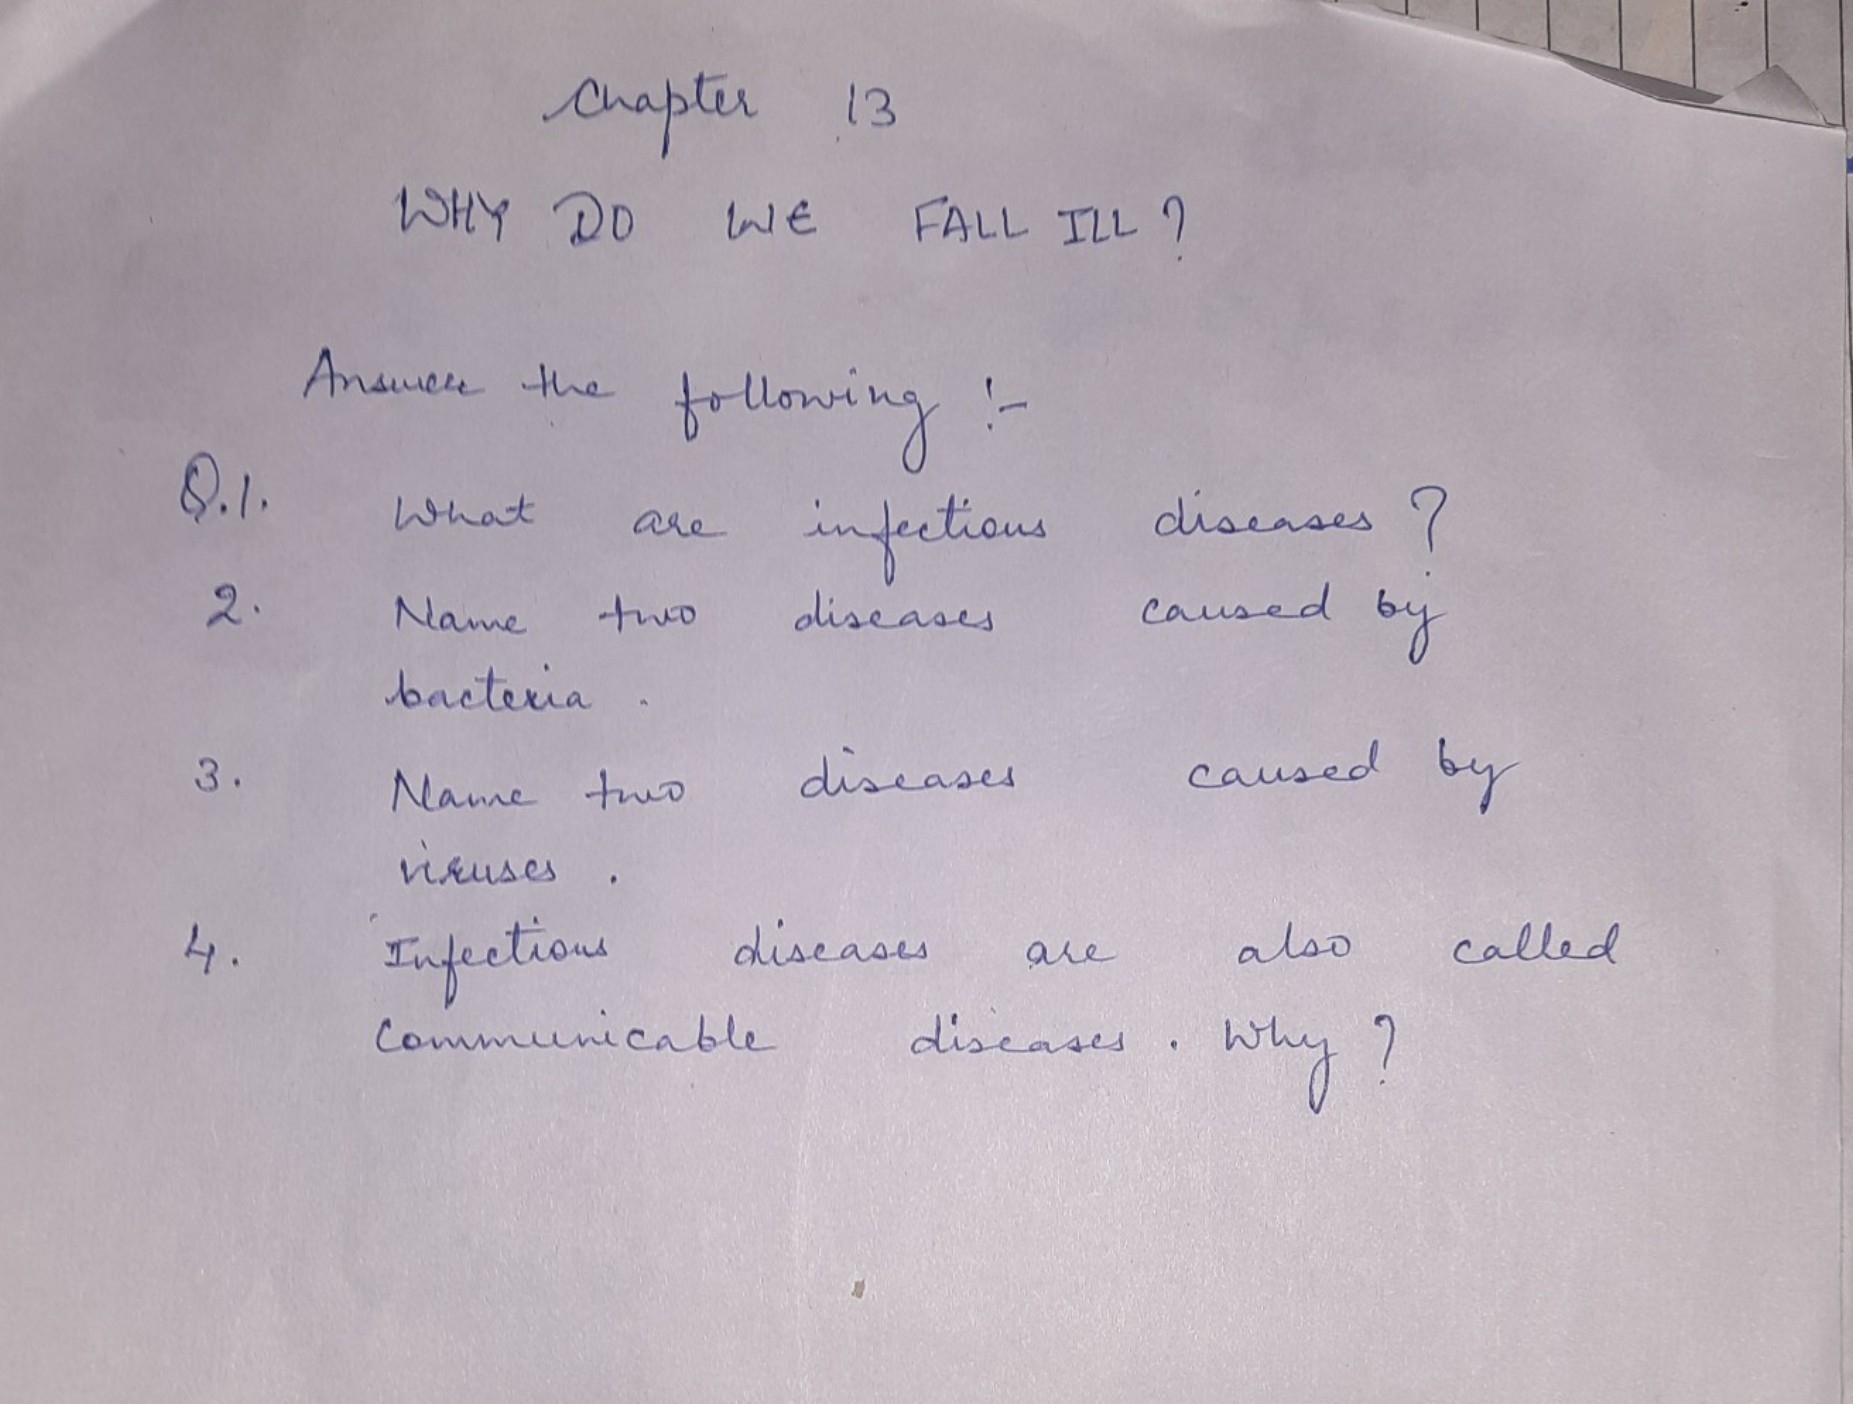 Chapter 13
WHY DO WE FALL ILL?
Answer the following :-
Q.1. What are infectious diseases?
2. Name two diseases caused by
bacteria.
3. Name two diseases caused by
viruses.
4. Infectious diseases are also called
Communicable diseases. Why?